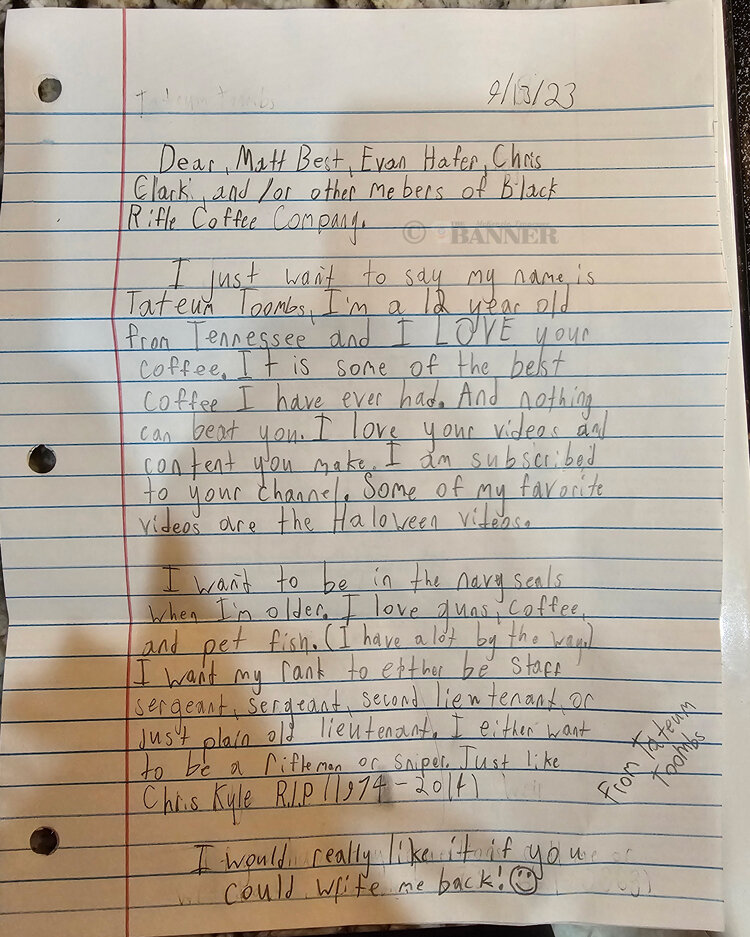 Tateum Toombs
9/13/23
Dear, Matt Best, Evan Hafer, Chris
Clark, and/or other mebers of Black
Rifle Coffee Company.
© THE McKenzie, Tennessee
BANNER
I just want to say my name is
Tateum Toombs, I'm a 12 year old
from Tennessee and I LOVE your
coffee. It is some of the best
coffee I have ever had. And nothing
can beat you. I love your videos and
content you make. I am subscribed
to your channel. Some of my favorite
videos are the Haloween videos.
I want to be in the navy seals
when I'm older. I love guns, coffee,
and pet fish. (I have alot by the way.)
I want my rank to either be staff
sergeant, sergeant, second lieutenant, or
just plain old lieutenant. I either want
to be a rifleman or sniper. Just like
Chris Kyle R.I.P (1974-2014)
From Tateum
Toombs
I would really like it if you
could write me back! ☺